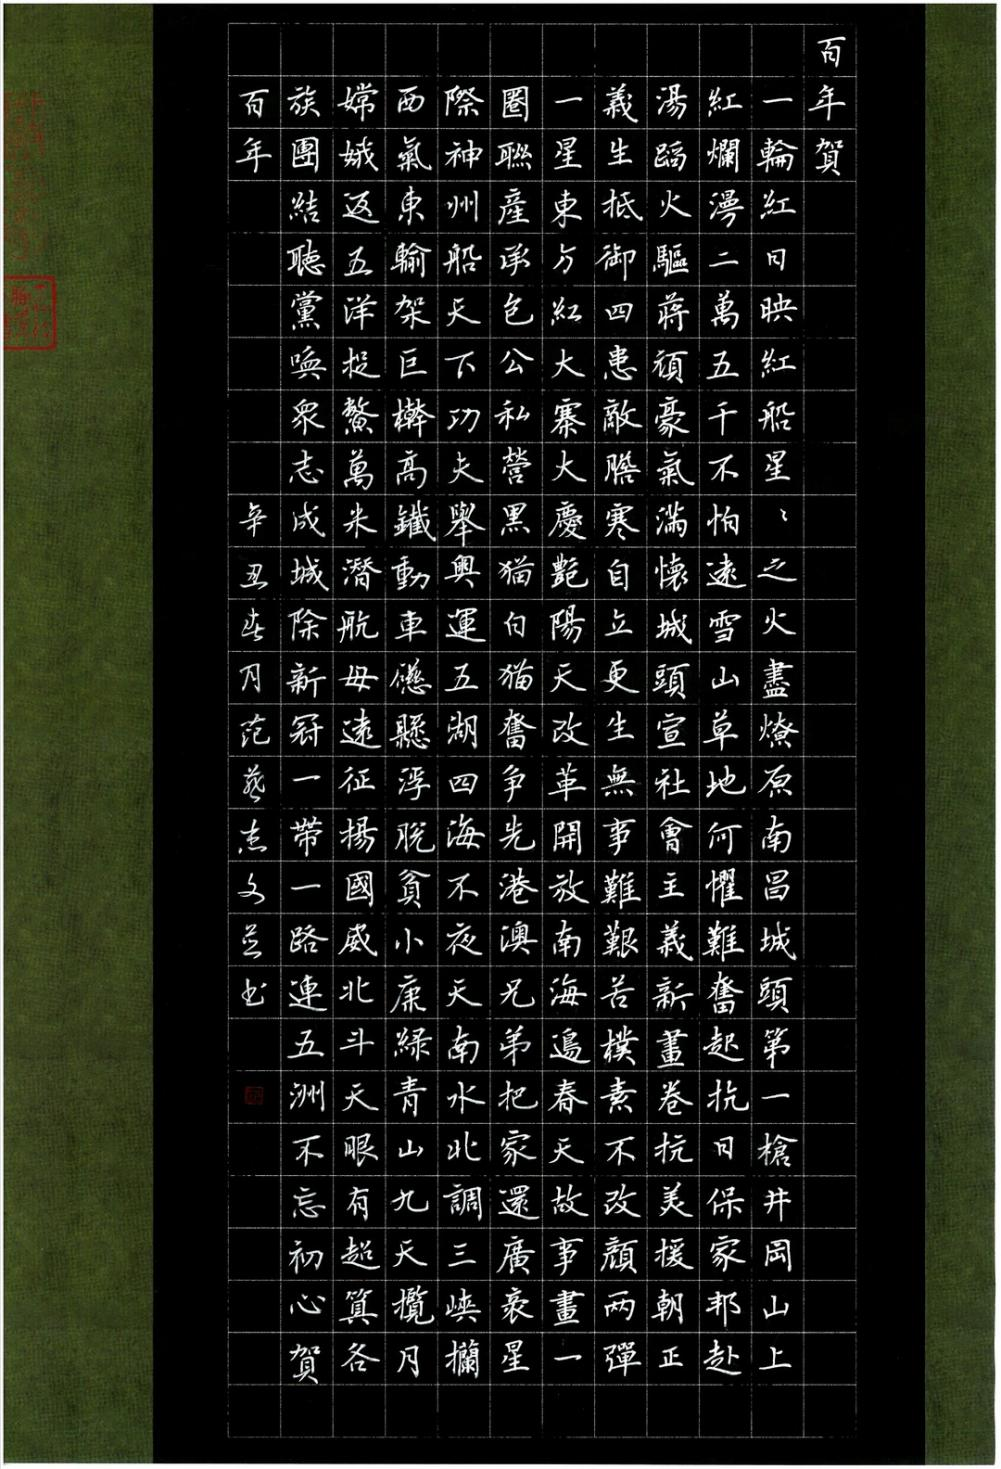 百年賀
一輪紅日映紅船星〻之火盡燎原南昌城頭第一槍井岡山上
紅爛漫二萬五千不怕遠雪山草地何懼難奮起抗日保家邦赴
湯蹈火驅蔣頑豪氣滿懷城頭宣社會主義新畫卷抗美援朝正
義生抵御四患敵膽寒自立更生無事難艱苦樸素不改顏兩彈
一星東方紅大寨大慶艷陽天改革開放南海邊春天故事畫一
圈聯產承包公私營黑猫白猫奮爭先港澳兄弟把家還廣袤星
際神州船天下功夫舉奧運五湖四海不夜天南水北調三峽攔
西氣東輸架巨樁高鐵動車磁懸浮脫貧小康綠青山九天攬月
嫦娥返五洋捉鰲萬米潛航母遠征揚國威北斗天眼有超算各
族團結聽黨喚眾志成城除新冠一帶一路連五洲不忘初心賀
百年 辛丑春月范藝杰文並書